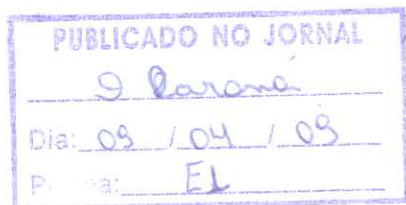 PUBLICADO NO JORNAL
O Paraná
Dia: 09 / 04 / 09
P a: E1